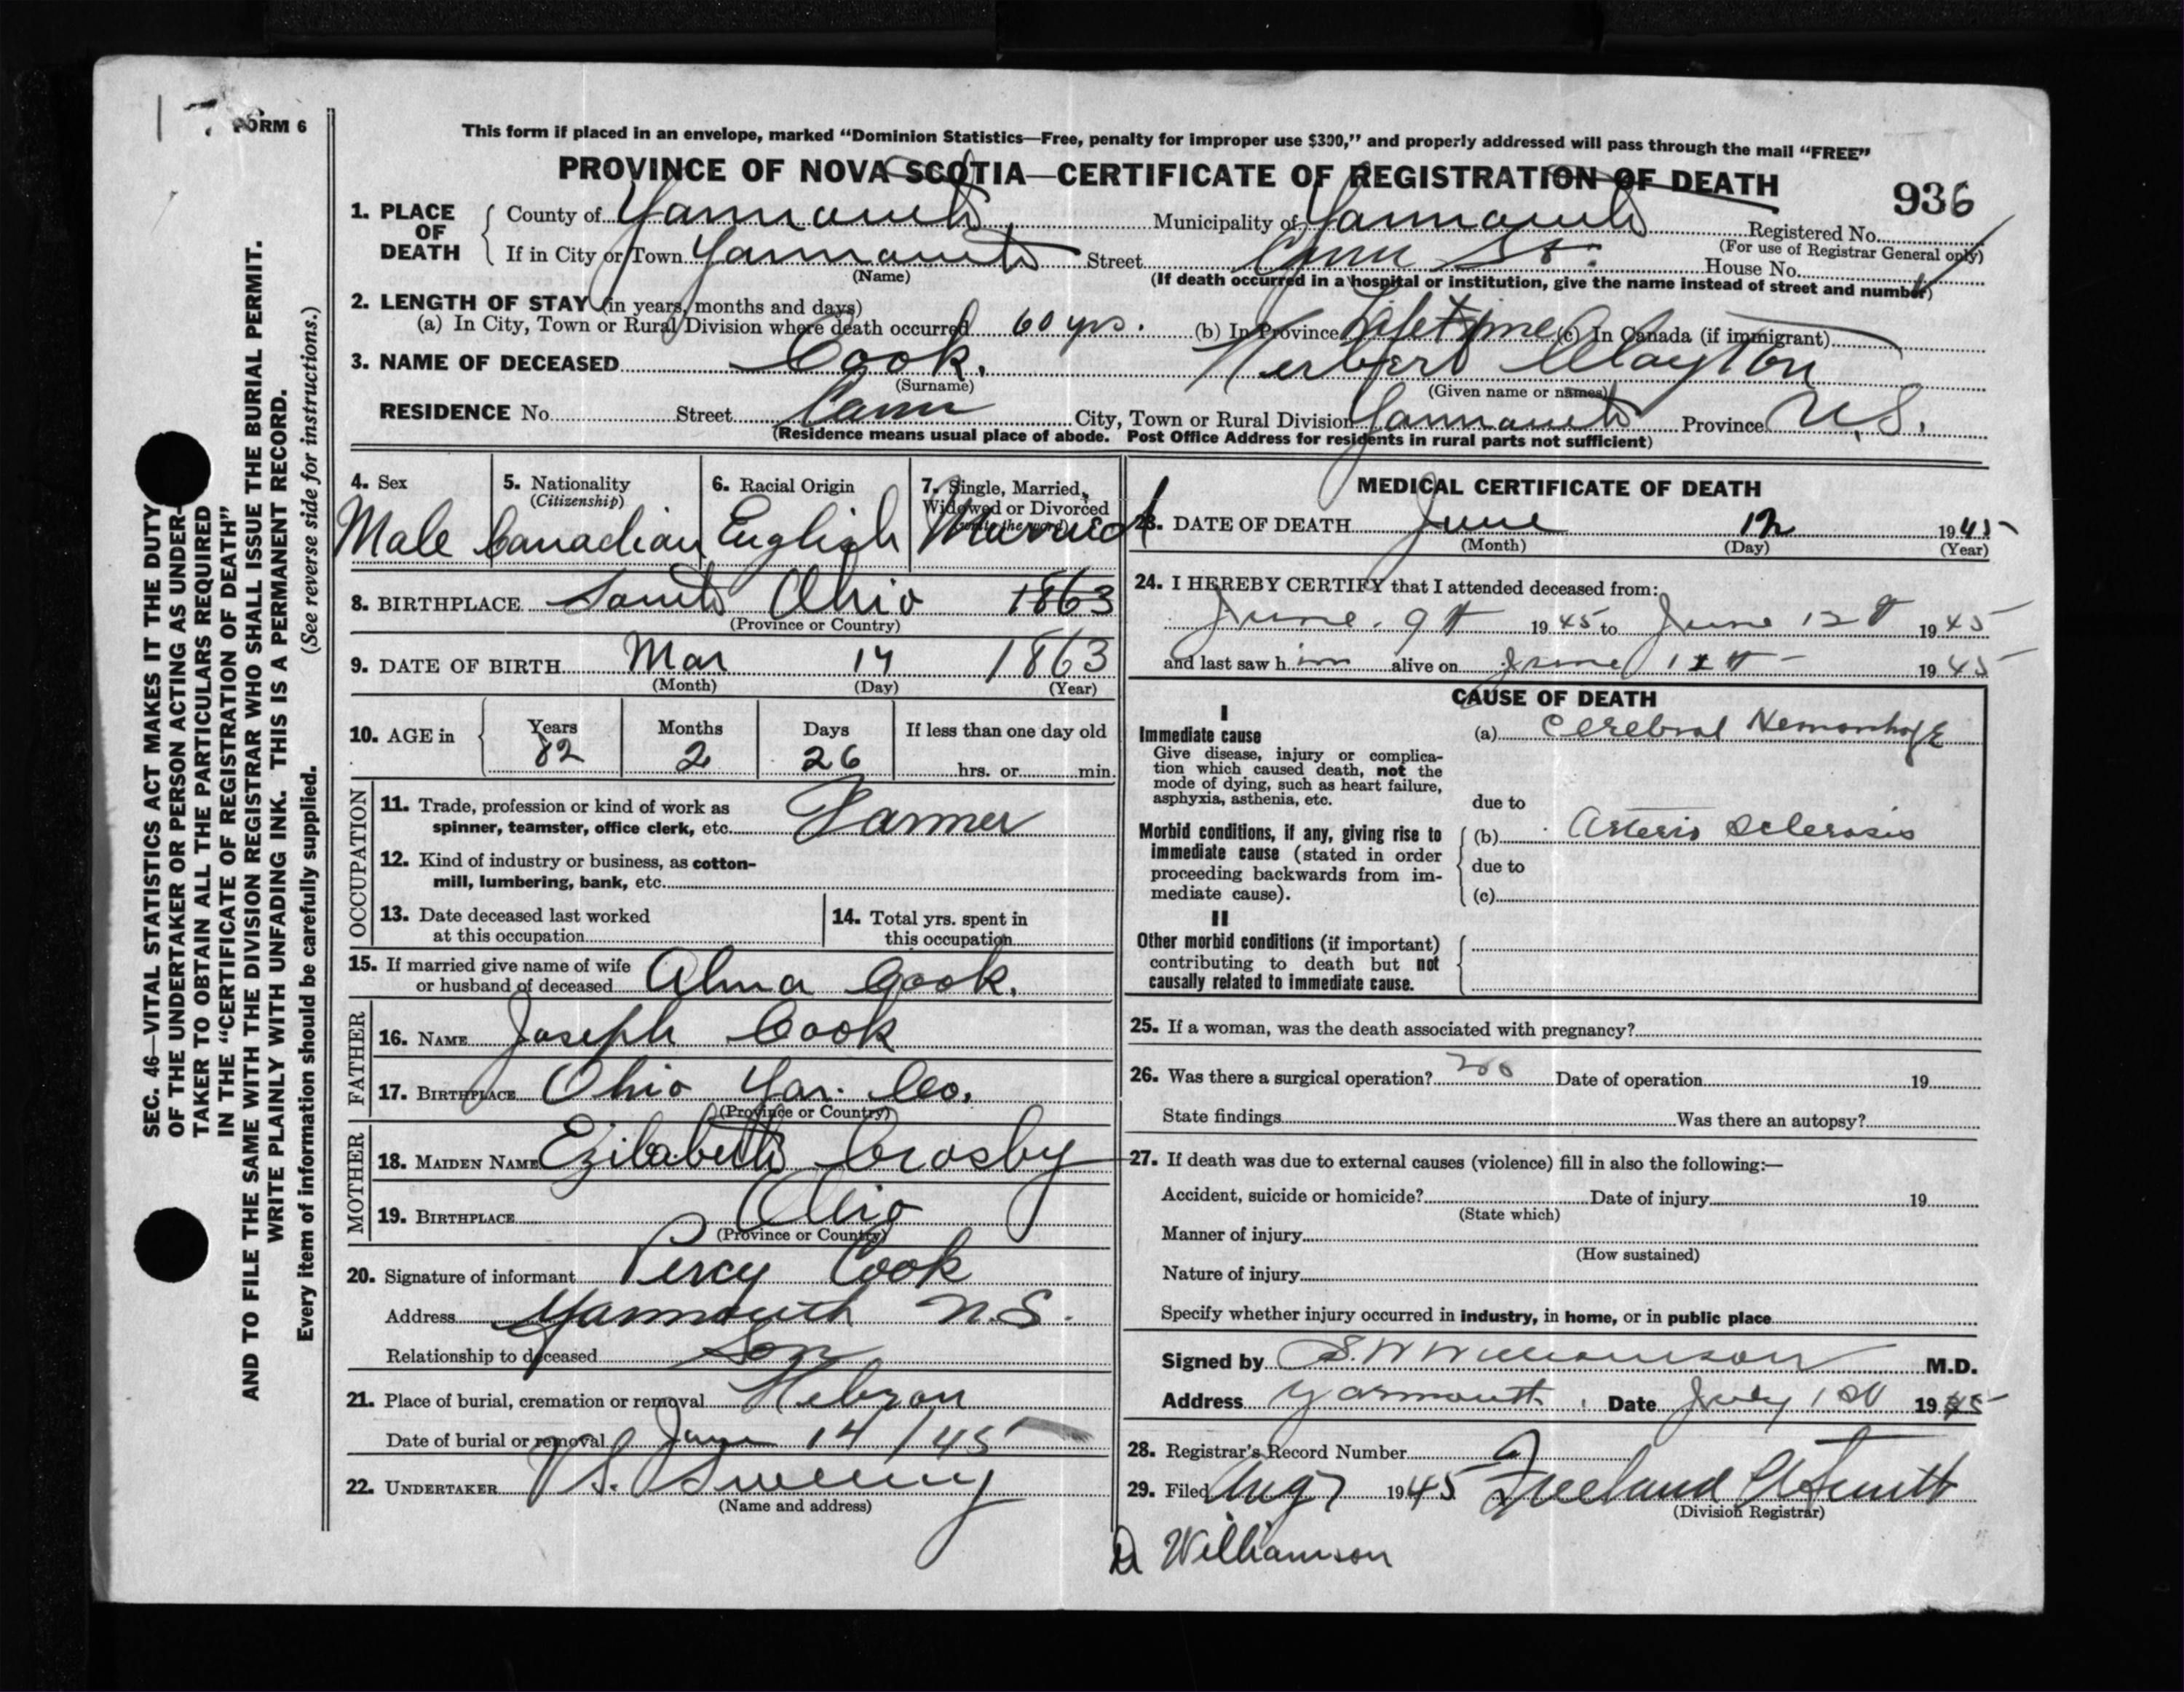 FORM 6
This form if placed in an envelope, marked “Dominion Statistics—Free, penalty for improper use $300,” and properly addressed will pass through the mail “FREE”
PROVINCE OF NOVA SCOTIA—CERTIFICATE OF REGISTRATION OF DEATH
936
1. PLACE OF DEATH
County of Yarmouth Municipality of Yarmouth Registered No.
(For use of Registrar General only)
If in City or Town Yarmouth Street Cann St. House No.
(Name) (If death occurred in a hospital or institution, give the name instead of street and number)
2. LENGTH OF STAY (in years, months and days)
(a) In City, Town or Rural Division where death occurred 60 yrs. (b) In Province Lifetime (c) In Canada (if immigrant)
3. NAME OF DECEASED Cook. Herbert Clayton
(Surname) (Given name or names)
RESIDENCE No. Street Cann City, Town or Rural Division Yarmouth Province N.S.
(Residence means usual place of abode. Post Office Address for residents in rural parts not sufficient)
4. Sex Male
5. Nationality (Citizenship) Canadian
6. Racial Origin English
7. Single, Married, Widowed or Divorced (write the word) Married
8. BIRTHPLACE South Ohio 1863
(Province or Country)
9. DATE OF BIRTH Mar 17 1863
(Month) (Day) (Year)
10. AGE in Years Months Days If less than one day old
82 2 26 hrs. or min.
OCCUPATION
11. Trade, profession or kind of work as
spinner, teamster, office clerk, etc. Farmer
12. Kind of industry or business, as cotton-
mill, lumbering, bank, etc.
13. Date deceased last worked
at this occupation
14. Total yrs. spent in
this occupation
15. If married give name of wife
or husband of deceased Alma Cook.
FATHER
16. NAME Joseph Cook
17. BIRTHPLACE Ohio Yar. Co.
(Province or Country)
MOTHER
18. MAIDEN NAME Ezilabeth Crosby
19. BIRTHPLACE Ohio
(Province or Country)
20. Signature of informant Percy Cook
Address Yarmouth N.S.
Relationship to deceased Son
21. Place of burial, cremation or removal Hebron
Date of burial or removal June 14/45
22. UNDERTAKER V S. Sweeny
(Name and address)
MEDICAL CERTIFICATE OF DEATH
23. DATE OF DEATH June 12 1945
(Month) (Day) (Year)
24. I HEREBY CERTIFY that I attended deceased from:
June 9th 1945 to June 12th 1945
and last saw him alive on June 1945
CAUSE OF DEATH
I
Immediate cause
Give disease, injury or complica-
tion which caused death, not the
mode of dying, such as heart failure,
asphyxia, asthenia, etc.
(a) Cerebral Hemorrhage
due to
Morbid conditions, if any, giving rise to
immediate cause (stated in order
proceeding backwards from im-
mediate cause).
(b) Arterio Sclerosis
due to
(c)
II
Other morbid conditions (if important)
contributing to death but not
causally related to immediate cause.
25. If a woman, was the death associated with pregnancy?
26. Was there a surgical operation? no Date of operation 19
State findings Was there an autopsy?
27. If death was due to external causes (violence) fill in also the following:—
Accident, suicide or homicide? Date of injury 19
(State which)
Manner of injury
(How sustained)
Nature of injury
Specify whether injury occurred in industry, in home, or in public place
Signed by S. W Williamson M.D.
Address Yarmouth Date July 1945
28. Registrar's Record Number
29. Filed Aug 7 1945 Freeland Smith
(Division Registrar)
Dr Williamson
SEC. 46—VITAL STATISTICS ACT MAKES IT THE DUTY
OF THE UNDERTAKER OR PERSON ACTING AS UNDER-
TAKER TO OBTAIN ALL THE PARTICULARS REQUIRED
IN THE “CERTIFICATE OF REGISTRATION OF DEATH”
AND TO FILE THE SAME WITH THE DIVISION REGISTRAR WHO SHALL ISSUE THE BURIAL PERMIT.
WRITE PLAINLY WITH UNFADING INK. THIS IS A PERMANENT RECORD.
Every item of information should be carefully supplied. (See reverse side for instructions.)